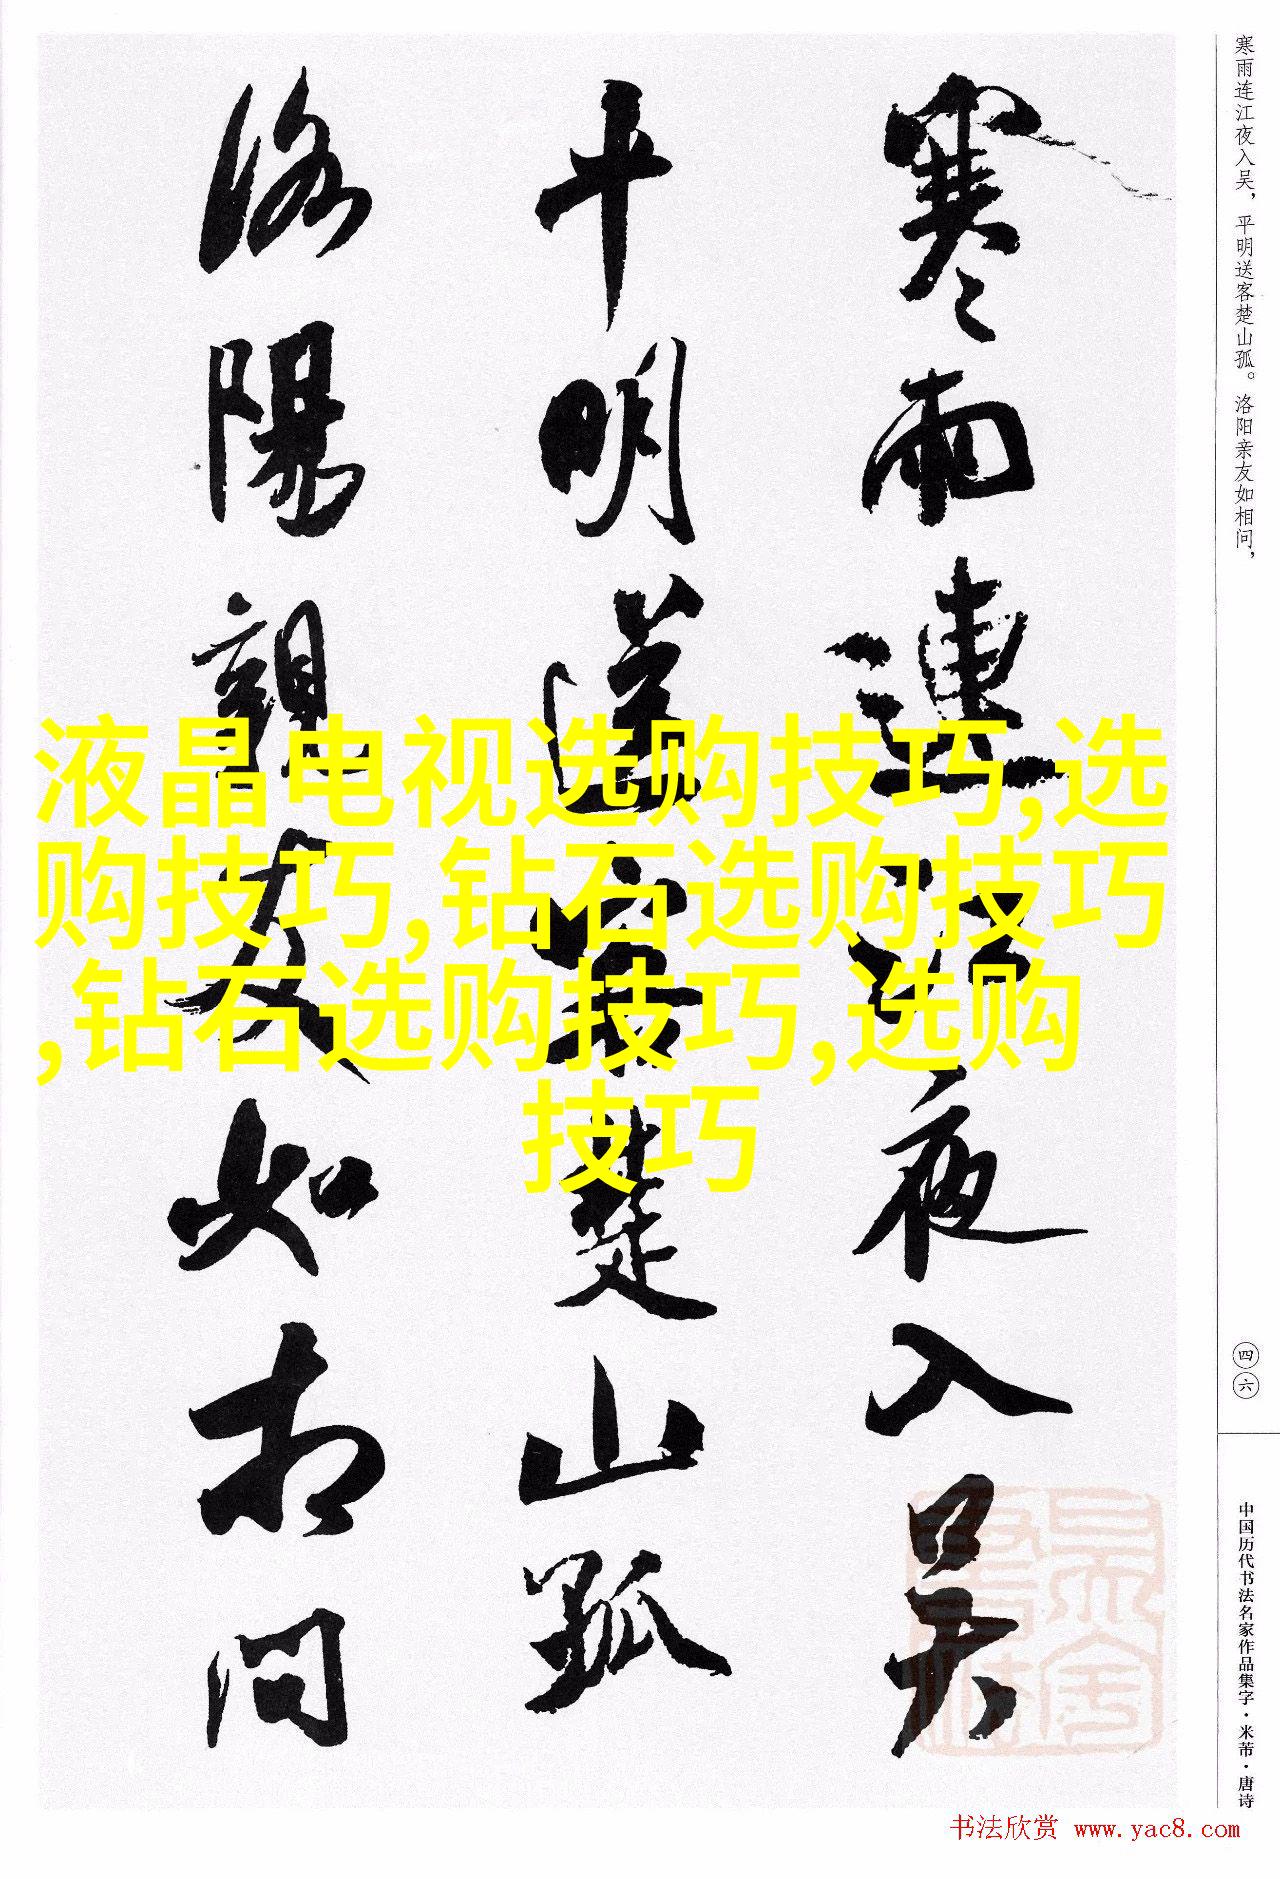 寒雨连江夜入吴，平明送客楚山孤。洛阳亲友如相问，
四六
中国历代书法名家作品集字·米芾·唐诗
寒雨連江夜入吴
平明送客楚山孤
洛陽親友如相問
液晶电视选购技巧,选
购技巧,钻石选购技巧
,钻石选购技巧,选购
技巧
书法欣赏 www.yac8.com